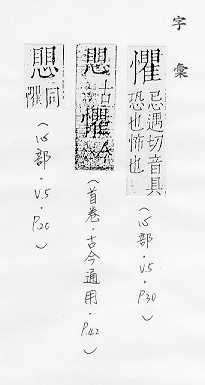 字彙
懼 忌遇切音具
恐也怖也
(心部·V.5·P.30)
古文
今
懼
(首卷·古今通用·P.42)
同
懼
(心部·V.5·P.20)